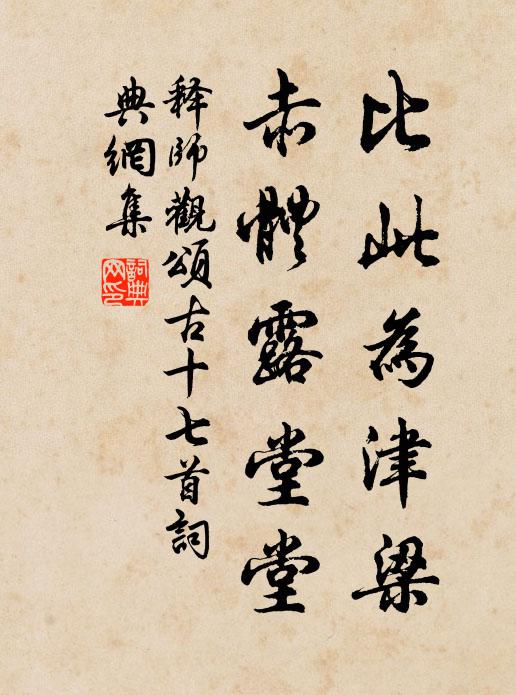 比此為津梁
赤體露堂堂
释師觀頌古十七首詞
典網集
詞典网印